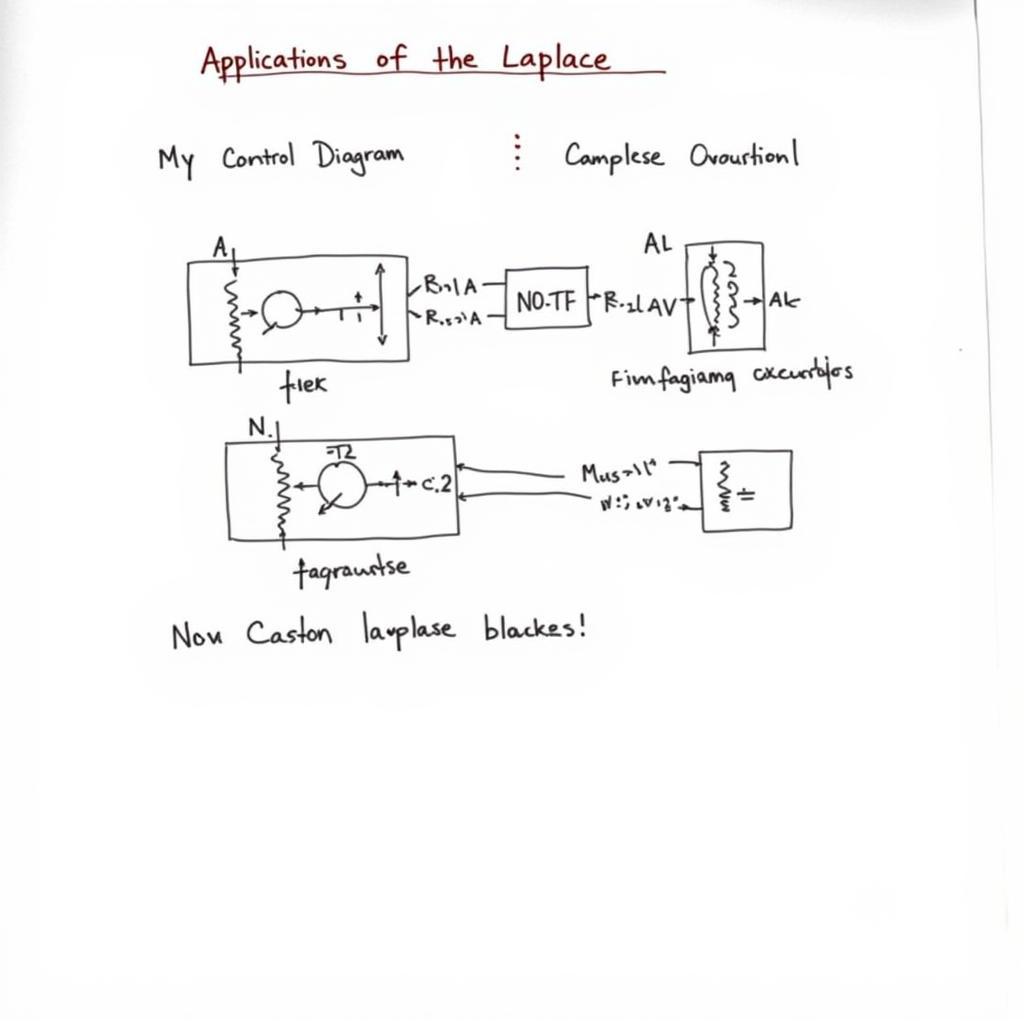 Applications of the Laplace
My Control Diagram
Camplese Ovourtionl
A
AL
NO-TF
AV
Ak
flek
Fimfagiamg
N.
-T2
c.2
fagrauwtse
Nov Caston lavplase blackes!